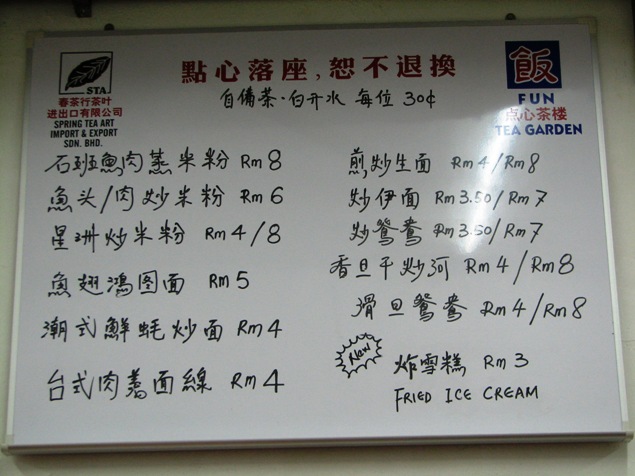 點心落座,恕不退換
自備茶·白开水 每位 30¢
STA
春茶行茶叶
进出口有限公司
SPRING TEA ART
IMPORT & EXPORT
SDN. BHD.
飯
FUN
点心茶楼
TEA GARDEN
石班魚肉蒸米粉 Rm8
魚头/肉炒米粉 Rm6
星洲炒米粉 Rm4/8
魚翅鴻图面 Rm5
潮式鮮蚝炒面 Rm4
台式肉羹面線 Rm4
煎炒生面 Rm4/Rm8
炒伊面 Rm3.50/Rm7
炒鴛鴦 Rm3.50/Rm7
香旦干炒河 Rm4/Rm8
滑旦鴛鴦 Rm4/Rm8
New
炸雪糕 Rm3
FRIED ICE CREAM